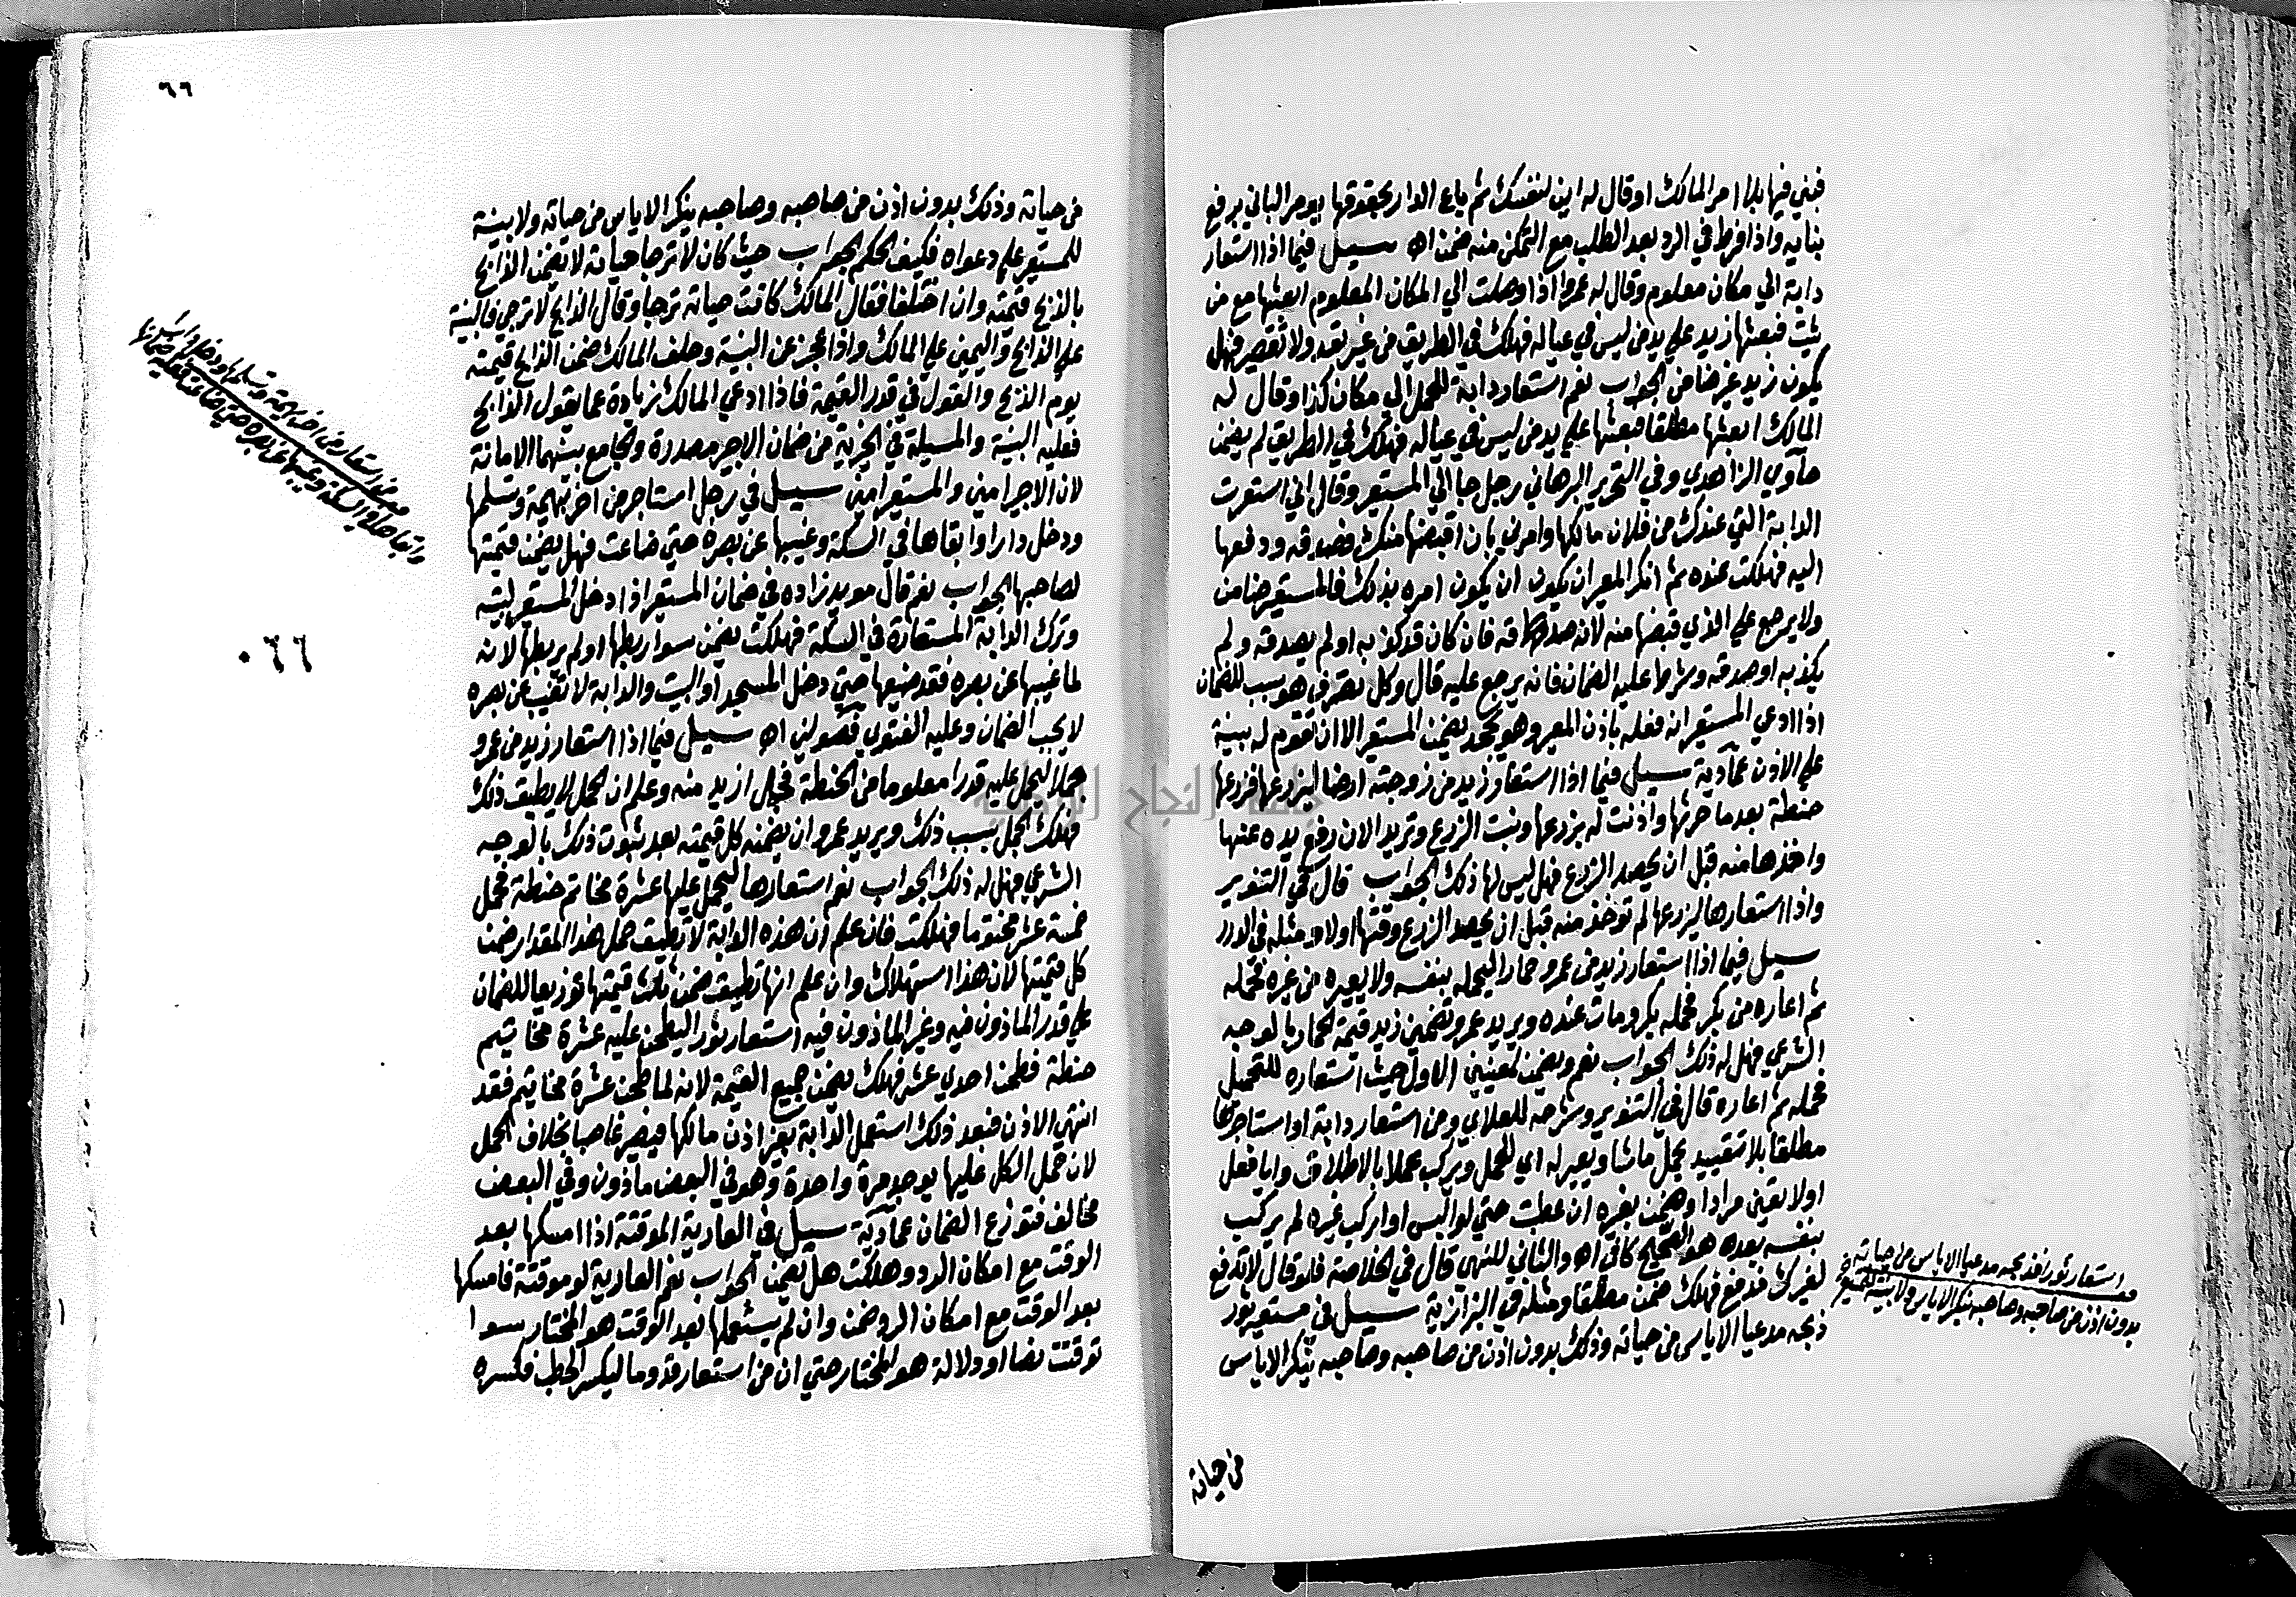 فبني فيها بلا امر المالك او قال له ابن لنفسك ثم باع الدار بحقوقها يومر الباني برفع
بنايه واذا فرط في الرد بعد الطلب مع التمكن منه ضمن اه سيل فيما اذا استعار
دابة الي مكان معلوم وقال له عمرو اذا وصلت الي المكان المعلوم ابعثها مع من
شيت فبعثها زيد علي يد من ليس في عياله فهلكت في الطريق من غير تعد ولا تقصير فهل
يكون زيد غير ضامن الجواب نعم استعار دابة للحمل الي مكان كذا وقال له
المالك ابعثها مطلقا فبعثها علي يد من ليس في عياله فهلكت في الطريق لم يضمن
حاوي الزاهدي وفي التحرير البرهاني رجل جا الي المستعير وقال اني استعرت
الدابة التي عندك من فلان مالكها وامرني بان اقبضها منك فصدقه ودفعها
اليه فهلكت عنده ثم انكر المعير ان يكون ان يكون امره بذلك فالمستعير ضامن
ولا يرجع علي الذي قبضها منه لانه صدقه فان كان قد كذبه او لم يصدقه ولم
يكذبه او صدقه وشرط عليه الضمان فانه يرجع عليه قال وكل تصرف هو سبب للضمان
اذا ادعي المستعير انه فعله باذن المعير وهو يجحد يضمن المستعير الا ان تقوم له بينة
علي الاذن عمادية سيل فيما اذا استعار زيد من زوجته ارضا ليزرعها فزرعها
حنطة بعد ما حرثها واذنت له بزرعها ونبت الزرع وتريد الان رفع يده عنها
واخذها منه قبل ان يحصد الزرع فهل ليس لها ذلك الجواب قال في التنوير
واذا استعارها ليزرعها لم توخذ منه قبل ان يحصد الزرع وقتها اولا ومثله في الدرر
سيل فيما اذا استعار زيد من عمرو حمارا ليحمله بنفسه ولا يعيره من غيره فحمله
ثم اعاره من بكر فحمله بكر ومات عنده ويريد عمرو تضمين زيد قيمة الحمار بالوجه
الشرعي فهل له ذلك الجواب نعم ويضمن لمعينين الاول حيث استعاره للتحميل
فحمله ثم اعاره قال في التنوير وشرحه للعلاي ومن استعار دابة او استاجرها
مطلقا بلا تقييد يحمل ماشا ويعير له اي للحمل ويركب عملا بالاطلاق وايا فعل
اولا تعين مرادا وضمن بغيره ان عطبت حتي لو البس او اركب غيره لم يركب
بنفسه بعده هو الصحيح كافي اه والثاني للنهي قال في الخلاصة فلو قال لا تدفع
لغيرك فدفع فهلك ضمن مطلقا ومثله في البزازية سيل في مستعير ثور
ذبحه مدعيا الاياس من حياته وذلك بدون اذن من صاحبه وصاحبه ينكر الاياس
من حياته
استعار ثورا فذبحه مدعيا الاياس من حياته
بدون اذن من صاحبه وصاحبه ينكر الاياس ولا بينة
٦٦
من حياته وذلك بدون اذن من صاحبه وصاحبه ينكر الاياس من حياته ولا بينة
للمستعير علي دعواه فكيف الحكم الجواب حيث كان لا ترجا حياته لا يضمن الذابح
بالذبح قيمته وان اختلفا فقال المالك كانت حياته ترجا وقال الذابح لا ترجي فالبينة
علي الذابح واليمين علي المالك واذا عجز عن البينة وحلف المالك ضمن الذابح قيمته
يوم الذبح والقول في قدر القيمة فاذا ادعي المالك زيادة عما يقول الذابح
فعليه البينة والمسيلة في الخيرية من ضمان الاجير مصدرة والجامع بينهما الامانة
لان الاجير امين والمستعير امين سيل في رجل استاجر من اخر بهيمة وتسلمها
ودخل دارا وابقاها في السكة وغيبها عن بصره حتي ضاعت فهل يضمن قيمتها
لصاحبها الجواب نعم قال مويد زاده في ضمان المستعير اذا دخل المستعير بيته
وترك الدابة المستعارة في السكة فهلكت يضمن سوا ربطها او لم يربطها لانه
لما غيبها عن بصره فقد ضيعها حتي دخل المسجد او البيت والدابة لا تغيب عن بصره
لا يجب الضمان وعليه الفتوي فصولين اه سيل فيما اذا استعار زيد من عمرو
جملا ليحمل عليه قدرا معلوما من الحنطة فحمل ازيد منه وعلم ان الجمل لا يطيق ذلك
فهلك الجمل بسبب ذلك ويريد عمرو ان يضمنه كل قيمته بعد ثبوت ذلك بالوجه
الشرعي فهل له ذلك الجواب نعم استعارها ليحمل عليها عشرة مخاتيم حنطة فحمل
خمسة عشر مختوما فهلكت فان علم ان هذه الدابة لا تطيق حمل هذا المقدار ضمن
كل قيمتها لان هذا استهلاك وان علم انها تطيق ضمن ثلث قيمتها توزيعا للضمان
علي قدر الماذون فيه وغير الماذون فيه استعار ثورا ليطحن عليه عشرة مخاتيم
حنطة فطحن احدي عشر فهلك يضمن جميع القيمة لانه لما طحن عشرة مخاتيم فقد
انتهي الاذن فبعد ذلك استعمل الدابة بغير اذن مالكها فيصير غاصبا بخلاف الحمل
لان حمل الكل عليها يوجد مرة واحدة وهو في البعض ماذون وفي البعض
مخالف فتوزع الضمان عمادية سيل في العارية الموقتة اذا امسكها بعد
الوقت مع امكان الرد وهلكت هل يضمن الجواب نعم العارية لو موقتة فامسكها
بعد الوقت مع امكان الرد ضمن وان لم يستعملها بعد الوقت هو المختار سوا
توقتت نصا او دلالة هو المختار حتي ان من استعار قدوما ليكسر الحطب فكسره
٠٦٦